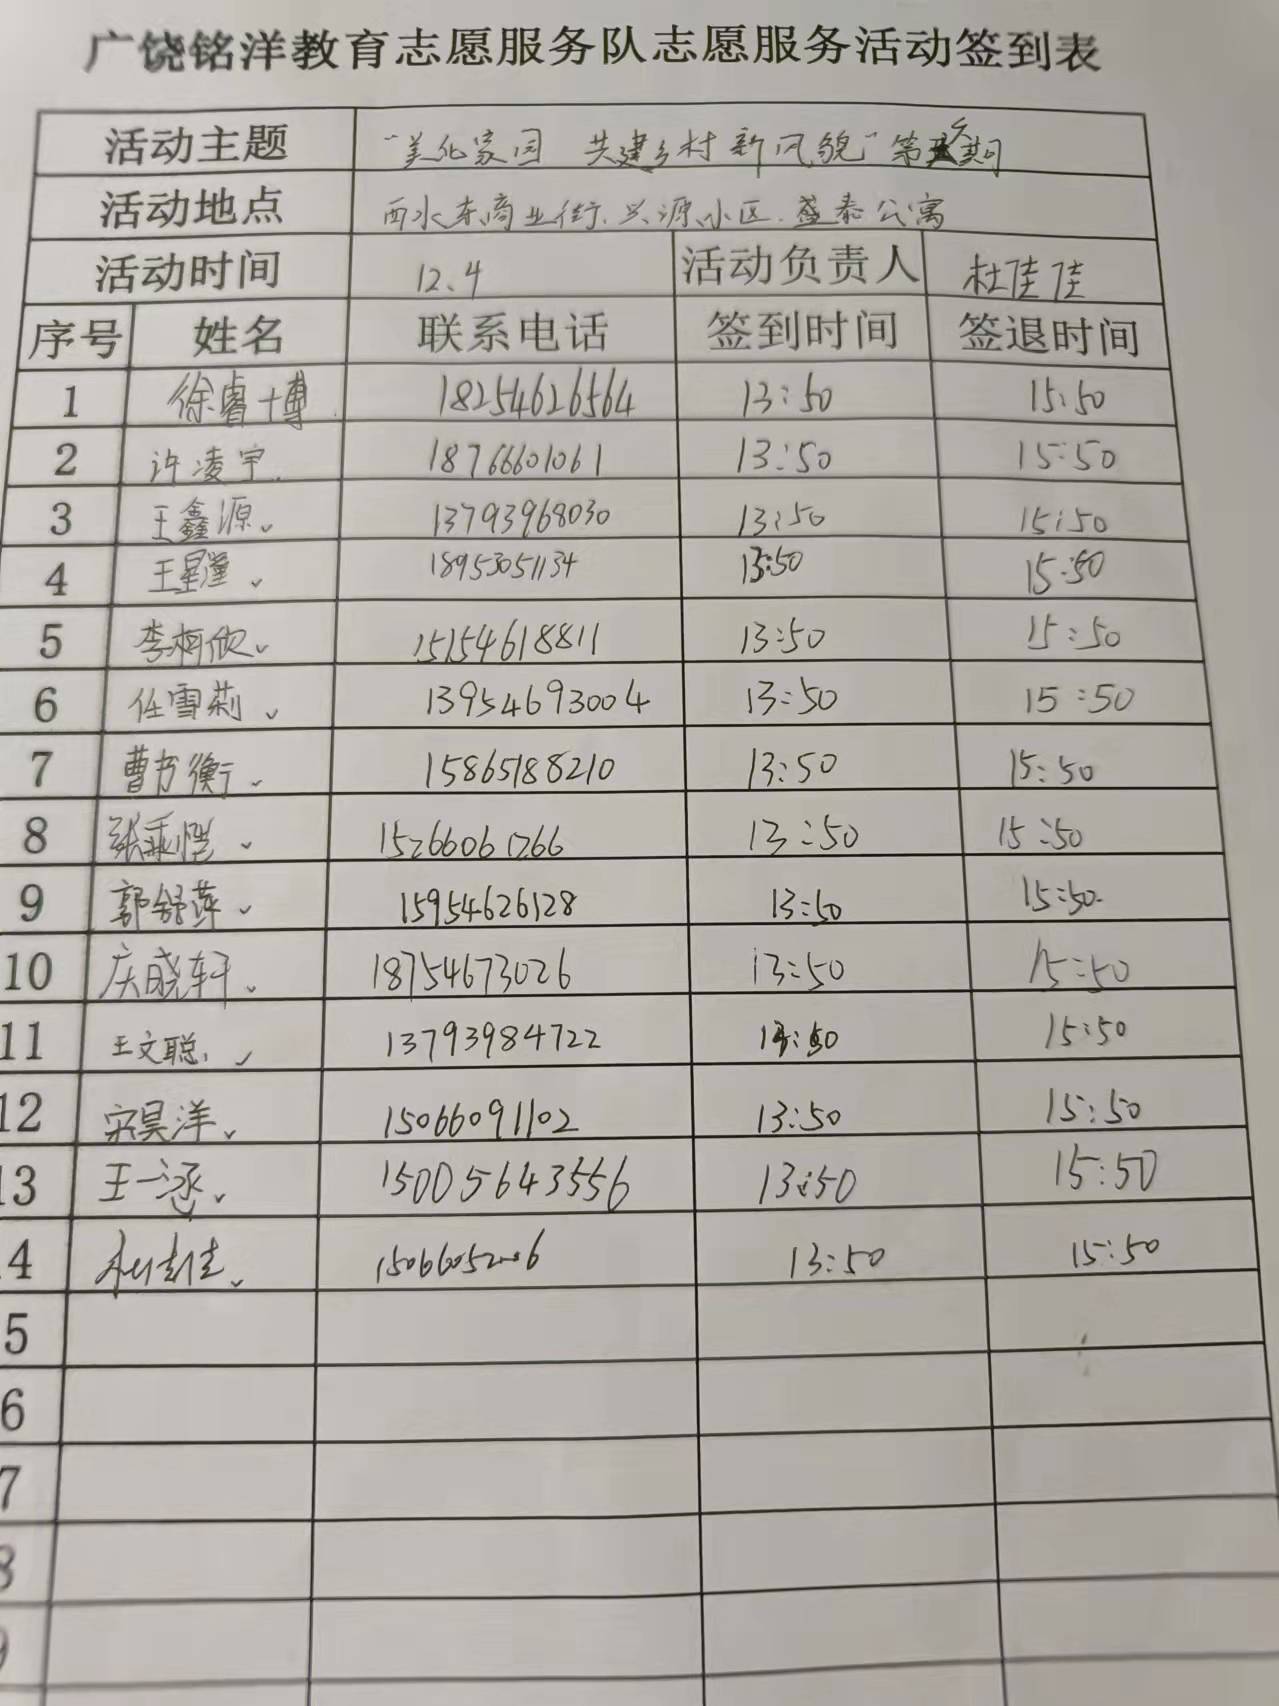 广饶铭洋教育志愿服务队志愿服务活动签到表
活动主题 “美化家园 共建乡村新风貌”第六期
活动地点 西水东商业街、兴源小区、盛泰公寓
活动时间 12.4 活动负责人 杜佳佳
序号 姓名 联系电话 签到时间 签退时间
1 徐睿博 18254626564 13:50 15:50
2 许凌宇 18766601061 13:50 15:50
3 王鑫源 13793968030 13:50 15:50
4 18953051134 13:50 15:50
5 李柯欣 15154618811 13:50 15:50
6 任雪莉 13954693004 13:50 15:50
7 曹书衡 15865188210 13:50 15:50
8 张秉恺 15266061266 13:50 15:50
9 郭舒萍 15954626128 13:50 15:50
10 庆晓轩 18754673026 13:50 15:50
11 王文聪 13793984722 13:50 15:50
12 宋昊洋 15066091102 13:50 15:50
13 王一涵 15005643556 13:50 15:50
4 杜佳佳 13:50 15:50
5
6
7
8
9